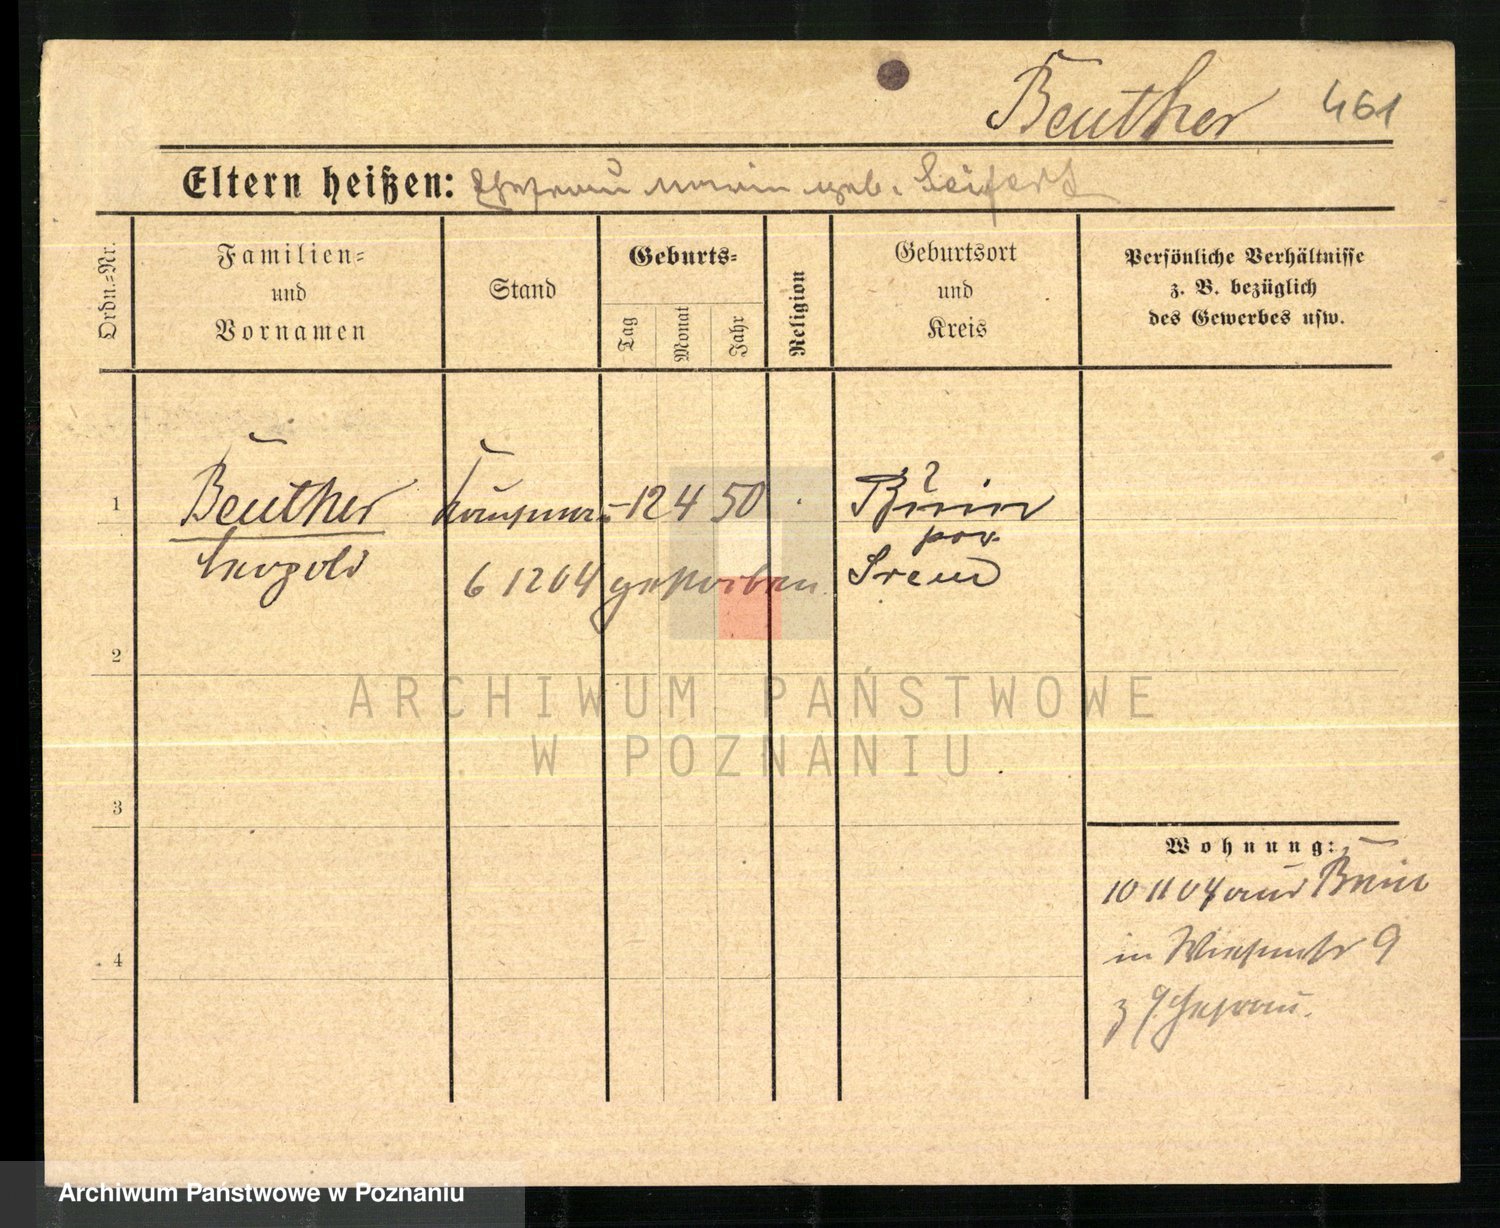 Beuther 461
Eltern heißen: Ehefrau Marie geb. Seifert
Ordn.=Nr.
Familien=
und
Vornamen
Stand
Geburts=
Tag
Monat
Jahr
Religion
Geburtsort
und
Kreis
Persönliche Verhältnisse
z. B. bezüglich
des Gewerbes usw.
1 Beuther Kaufmann 12 4 50 Bnin
Leopold
Srem
6 12 04 gestorben
2
ARCHIWUM PAŃSTWOWE
W POZNANIU
3
Wohnung:
10 11 04 aus Bnin
in Wiesenstr 9
z Ehefrau.
4
Archiwum Państwowe w Poznaniu